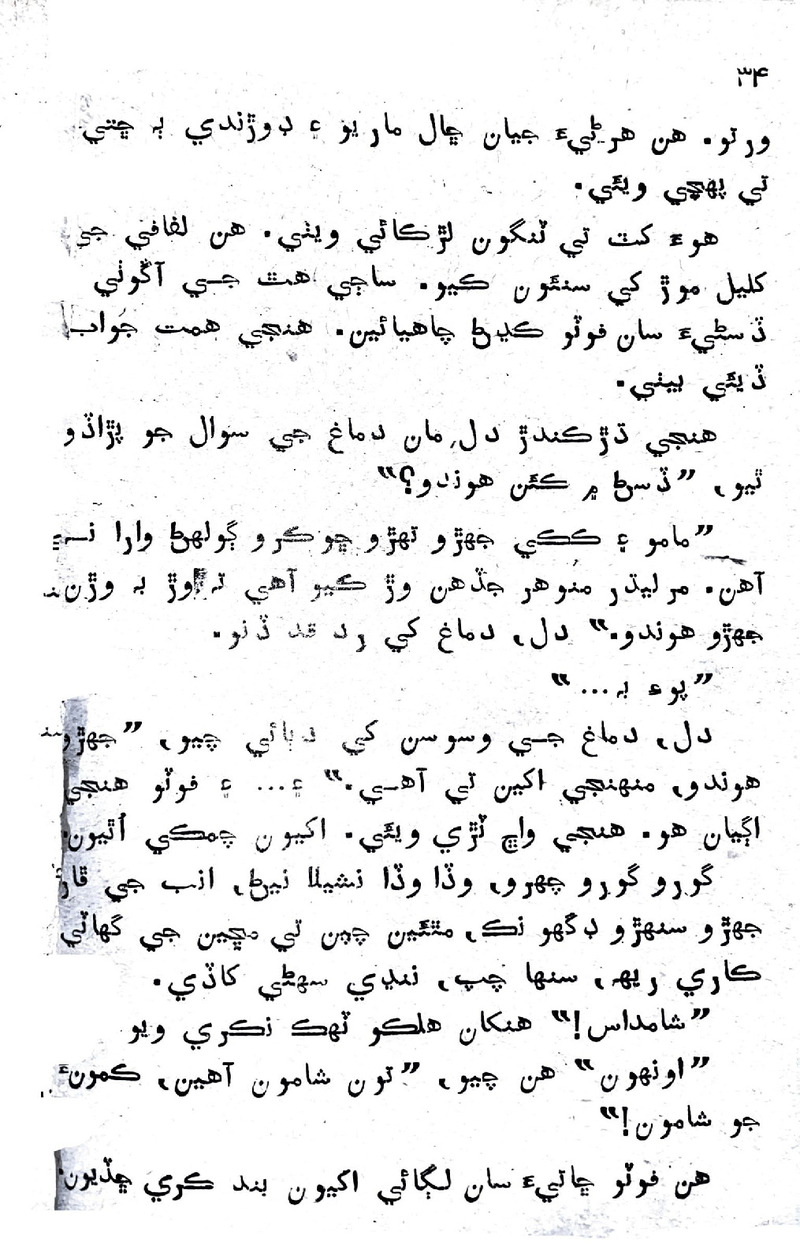 ۳۴
ورتو. هن هرڻيءَ جيان ڇال ماريو ۽ ڊوڙندي ٻه ڇتي
تي پهچي ويئي.
هوءَ کٽ تي ٽنگون لڙڪائي ويٺي. هن لفافي جي
کليل موڙ کي سنئون ڪيو. ساڄي هٿ جي آڱوٺي
ڏسڻيءَ سان فوٽو ڪڍڻ چاهيائين. هنجي همت جواب
ڏيئي بيٺي.
هنجي ڌڙڪندڙ دل، مان دماغ جي سوال جو پڙاڏو
ٿيو، ”ڏسڻ ۾ ڪئن هوندو؟“
”مامو ۽ ڪڪي جهڙو تهڙو ڇوڪرو ڳولهڻ وارا نه
آهن. مرليڌر منوهر جڏهن وڙ ڪيو آهي ته وڙ به وڙن
جهڙو هوندو.“ دل، دماغ کي رد قد ڏنو.
”پوءِ به...“
دل، دماغ جي وسوسن کي دٻائي چيو، ”جهڙو
هوندو، منهنجي اکين تي آهي.“ ۽... ۽ فوٽو هنجي
اڳيان هو. هنجي واڇ ٽڙي ويئي. اکيون چمڪي اُٿيون.
گورو گورو چهرو، وڏا وڏا نشيلا نيڻ، انب جي ڦار
جهڙو سنهڙو ڊگهو نڪ، مٿئين چپن تي مڇين جي گهاٽي
ڪاري ريهه، سنها چپ، ننڍي سهڻي کاڏي.
”شامداس!“ هنکان هلڪو ٽهڪ نڪري ويو
”اونهون“ هن چيو، ”تون شامون آهين، ڪمونءَ
جو شامون!“
هن فوٽو ڇاتيءَ سان لڳائي اکيون بند ڪري ڇڏيون.